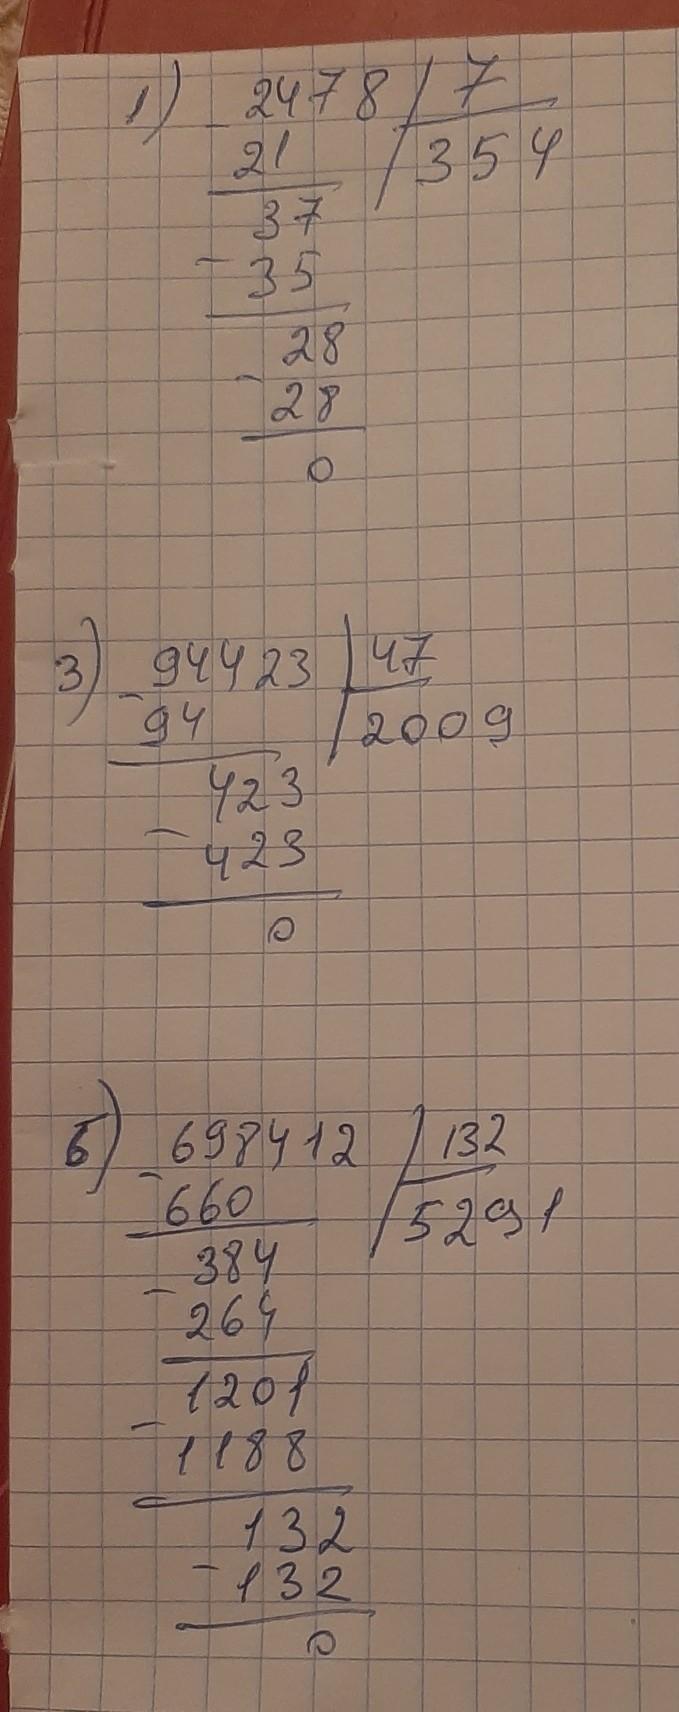 1) - 2478 | 7
21 | 354
37
- 35
28
- 28
0
3) - 94423 | 47
94 | 2009
423
- 423
0
6) - 698412 | 132
660 | 5291
384
- 264
1201
- 1188
132
- 132
0